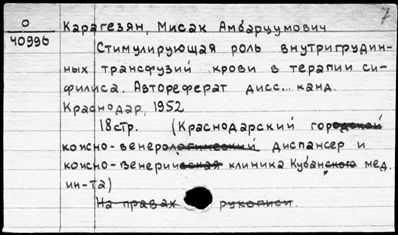 7
О
40996
Карагезян, Мисак Амбарцумович
Стимулирующая роль внутригрудин-
ных трансфузий крови в терапии си-
филиса. Автореферат дисс... канд.
Краснодар, 1952
18стр. (Краснодарский городской
кожно-венерологический диспансер и
кожно-венерическая клиника Кубанского мед.
ин-та)
На правах рукописи.